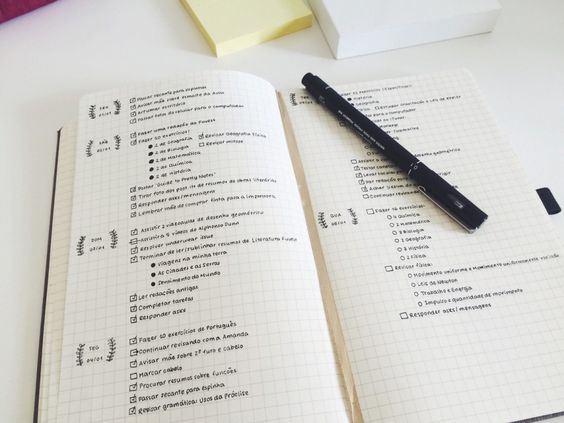 SEX
01/01
Passar secante para espinhas
Avisar mãe sobre esmalte da Avon
Arrumar escritório
Passar fotos do celular para o computador
SÁB
02/01
Fazer uma redação da Fuvest
Fazer 10 exercícios:
2 de Geografia
Revisar Geografia Física
2 de Biologia
Revisar mitose
2 de matemática
2 de Química
2 de História
Postar "Guide to Pretty Notes"
Tirar foto dos post its de resumos de obras literárias
Responder asks/mensagens
Lembrar mãe de comprar tinta para a impressora
DOM
03/01
Assistir 2 videoaulas de desenho geométrico
Assistir 5 vídeos do Alphonso Dunn
Resolver underwear issue
Terminar de ler/sublinhar resumos de Literatura Fuvest
Viagens na minha terra
As Cidades e as Serras
Sentimento do Mundo
Ler redações antigas
Completar tarefas
Responder asks
SEG
04/01
Fazer 10 exercícios de Português
Continuar revisando com a Amanda
Avisar mãe sobre 2º furo e cabelo
Marcar cabelo
Procurar resumos sobre funções
Passar secante para espinha
Revisar gramática: Usos da Próclise
TER
História
Geografia
geométrico
QUA
06/01
Fazer 10 exercícios:
2 Química
2 Matemática
2 Biologia
2 Geografia
2 História
2 Física
Revisar física:
Movimento uniforme e Movimento uniformemente variado
Leis de Newton
Trabalho e Energia
Impulso e quantidade de movimento
Responder asks/mensagens